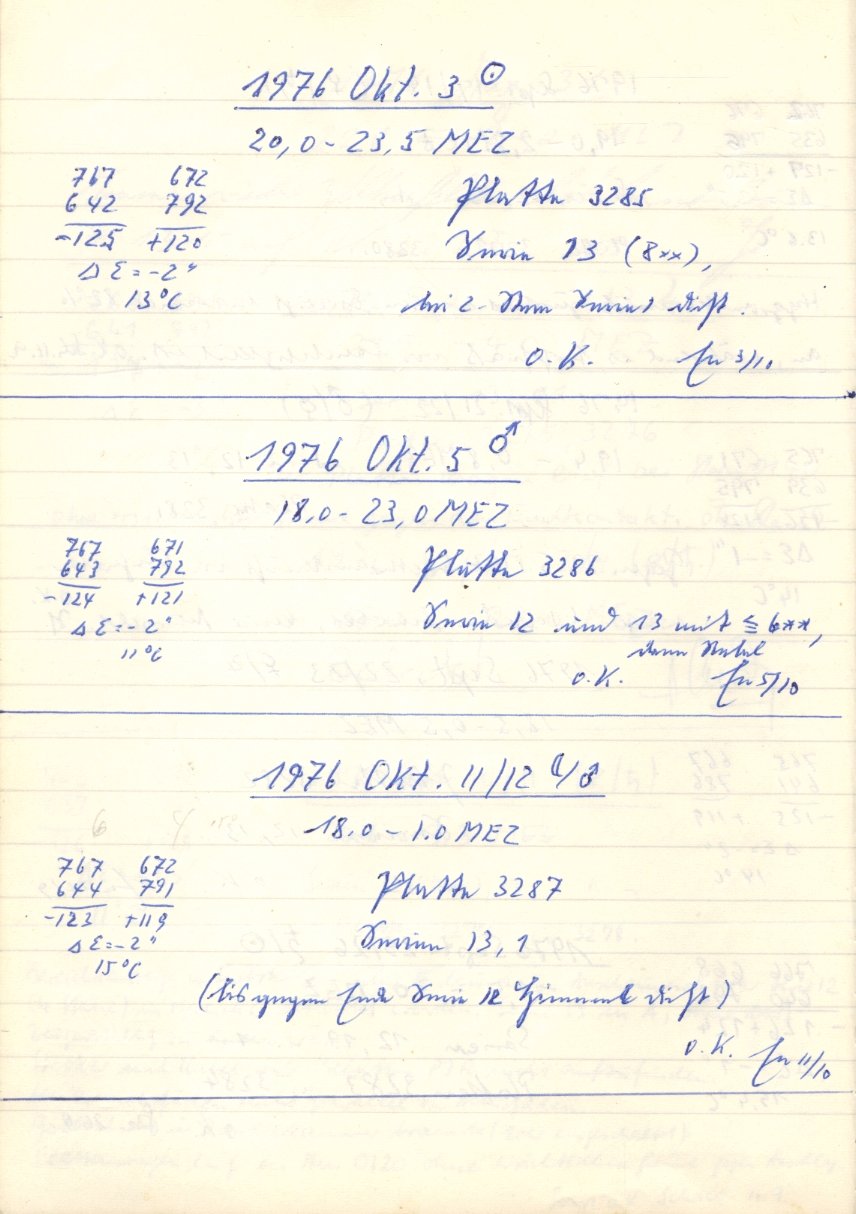 1976 Okt. 3 ☉
20,0 - 23,5 MEZ
767 672
642 792
-125 +120
Δ Σ = -2"
13°C
Platte 3285
Serie 13 (8**),
bei 2. Stern Serie 1 dicht.
O.K. En 3/10
1976 Okt. 5 ♂
18,0 - 23,0 MEZ
767 671
643 792
-124 +121
Δ Σ = -2"
11°C
Platte 3286
Serie 12 und 13 mit ≦ 6**,
dann Nebel
O.K. En 5/10
1976 Okt. 11/12 ☾/♂
18.0 - 1.0 MEZ
767 672
644 791
-123 +119
Δ Σ = -2"
15°C
Platte 3287
Serien 13, 1
(bis gegen Ende Serie 12 Himmel dicht)
O.K. En 11/10